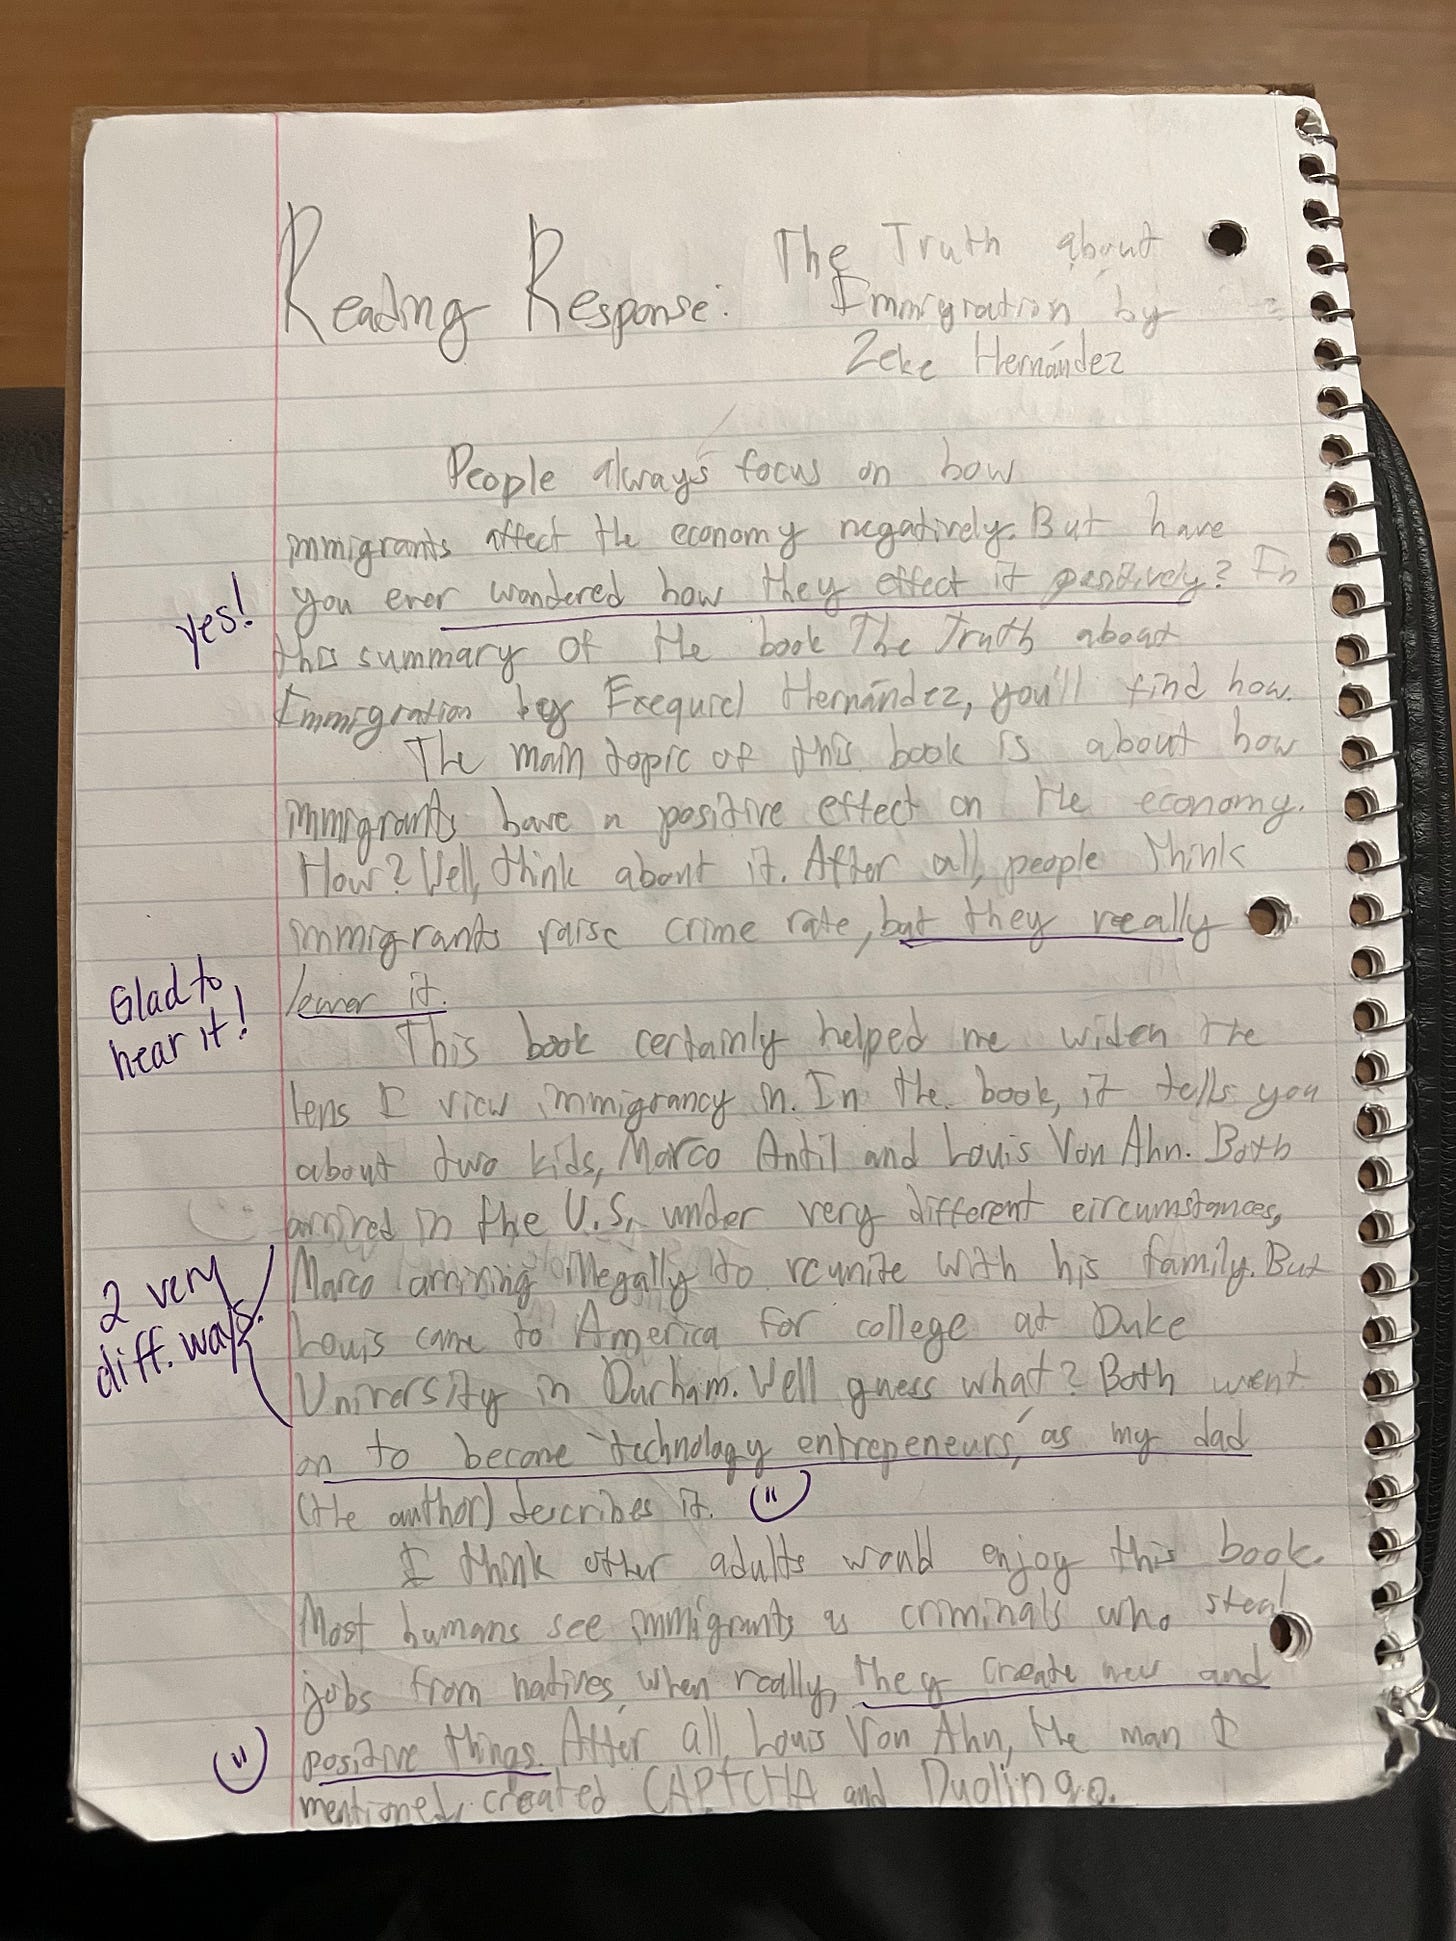 Reading Response: The Truth about
Immigration by
Zeke Hernández
People always focus on how
immigrants affect the economy negatively. But have
you ever wondered how they effect it positively? In
yes!
this summary of the book The Truth about
Immigration by Exequiel Hernández, you'll find how.
The main topic of this book is about how
immigrants have a positive effect on the economy.
How? Well, think about it. After all, people think
immigrants raise crime rate, but they really
lower it.
Glad to
hear it!
This book certainly helped me widen the
lens I view immigrancy in. In the book, it tells you
about two kids, Marco Antil and Louis Von Ahn. Both
arrived in the U.S. under very different circumstances,
Marco arriving illegally to reunite with his family. But
2 very
diff. ways.
Louis came to America for college at Duke
University in Durham. Well guess what? Both went
on to become "technology entrepeneurs," as my dad
(the author) describes it.
I think other adults would enjoy this book.
Most humans see immigrants as criminals who steal
jobs from natives, when really, they create new and
positive things. After all, Louis Von Ahn, the man I
mentioned, created CAPTCHA and Duolingo.